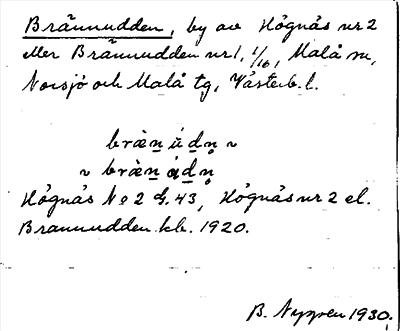 Brännudden, by av Högnäs nr 2
eller Brännudden nr 1, 1/16, Malå sn,
Norsjö och Malå tg, Västerb. l.
bræ̀n ŭ́ dn̥ ~
~ bræ̀n ádn̥
Högnäs No 2 G. 43, Högnäs nr 2 el.
Brannudden kb. 1920.
B. Nygren 1930.